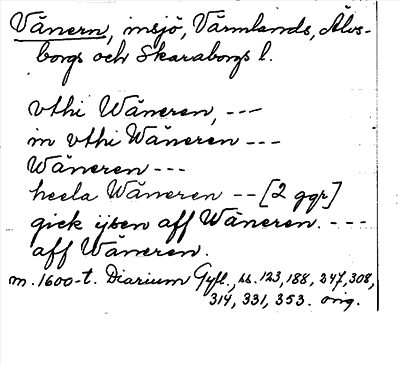 Vänern, insjö, Värmlands, Älvs-
borgs och Skaraborgs l.
vthi Wäneren, ---
in vthi Wäneren ---
Wäneren ---
heela Wäneren -- [2 ggr]
giek ijsen aff Wäneren. ---
aff Wäneren.
m. 1600-t. Diarium Gyll., ss. 123, 188, 247, 308,
314, 331, 353. orig.